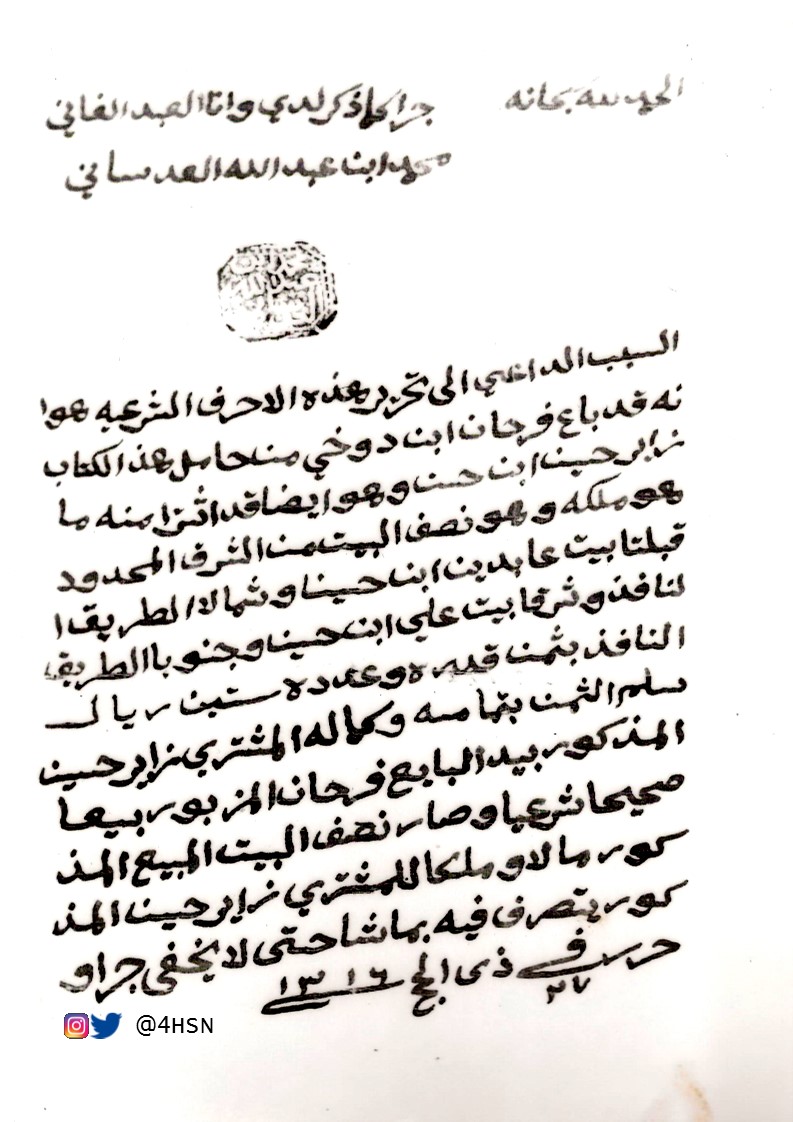 الحمد لله سبحانه
جرا كما ذكر لدي وانا العبد الفاني
محمد ابن عبد الله العدساني
السبب الداعي الى تحرير هذه الاحرف الشرعيه هوا
نه قد باع فرحان ابن دوخي من حامل هذ الكتاب
زاير حسين ابن حسن وهو ايضا قد اشترا منه ما
هو ملكه وهو نصف البيت من الشرق المحدود
قبلتا بيت عابدين ابن حسين وشمالا الطريق ا
لنافذ وشرقا بيت علي ابن حسين وجنوبا الطريق
النافذ بثمن قدره وعدده ستين ريال
سلم الثمن بتمامه وكماله المشتري زاير حسين
المذكور بيد البايع فرحان المزبور بيعا
صحيحا شرعيا وصار نصف البيت المبيع المذ
كور مالا وملكا للمشتري زاير حسين المذ
كور يتصرف فيه بما شا حتى لا يخفى جرا و
حرر في ٢٧ ذى الحج ١٣١٦
@4HSN